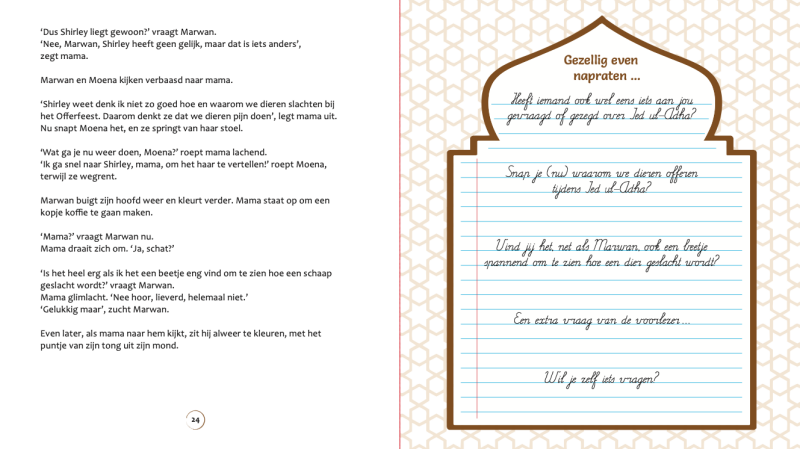 ‘Dus Shirley liegt gewoon?’ vraagt Marwan.
‘Nee, Marwan, Shirley heeft geen gelijk, maar dat is iets anders’,
zegt mama.
Marwan en Moena kijken verbaasd naar mama.
‘Shirley weet denk ik niet zo goed hoe en waarom we dieren slachten bij
het Offerfeest. Daarom denkt ze dat we dieren pijn doen’, legt mama uit.
Nu snapt Moena het, en ze springt van haar stoel.
‘Wat ga je nu weer doen, Moena?’ roept mama lachend.
‘Ik ga snel naar Shirley, mama, om het haar te vertellen!’ roept Moena,
terwijl ze wegrent.
Marwan buigt zijn hoofd weer en kleurt verder. Mama staat op om een
kopje koffie te gaan maken.
‘Mama?’ vraagt Marwan nu.
Mama draait zich om. ‘Ja, schat?’
‘Is het heel erg als ik het een beetje eng vind om te zien hoe een schaap
geslacht wordt?’ vraagt Marwan.
Mama glimlacht. ‘Nee hoor, lieverd, helemaal niet.’
‘Gelukkig maar’, zucht Marwan.
Even later, als mama naar hem kijkt, zit hij alweer te kleuren, met het
puntje van zijn tong uit zijn mond.
24
Gezellig even
napraten ...
Heeft iemand ook wel eens iets aan jou
gevraagd of gezegd over Ied ul-Adha?
Snap je (nu) waarom we dieren offeren
tijdens Ied ul-Adha?
Vind jij het, net als Marwan, ook een beetje
spannend om te zien hoe een dier geslacht wordt?
Een extra vraag van de voorlezer...
Wil je zelf iets vragen?